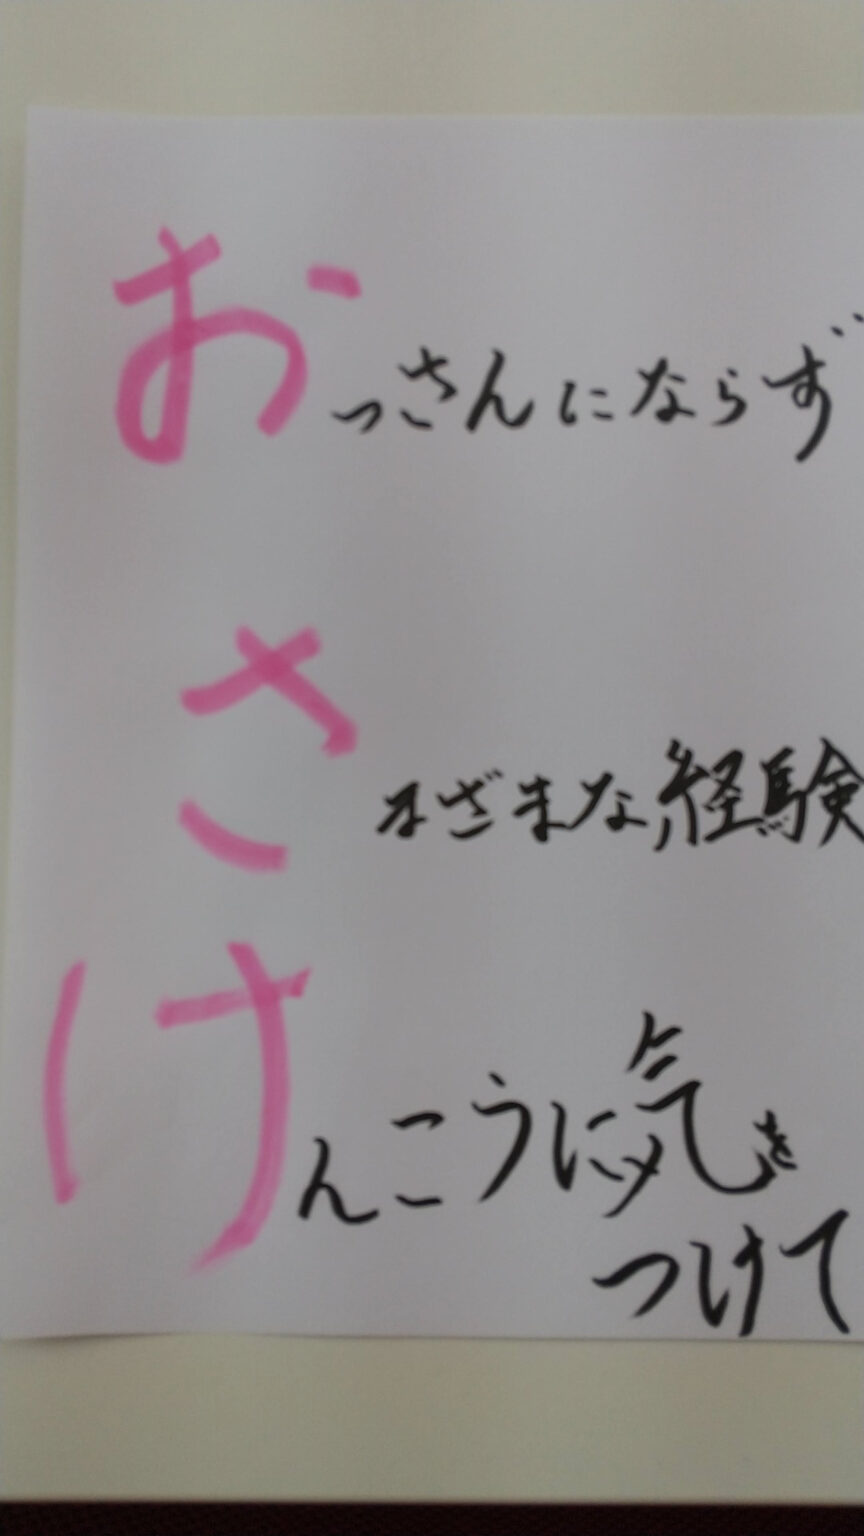 おっさんにならず
さまざまな経験
けんこうに気を
つけて